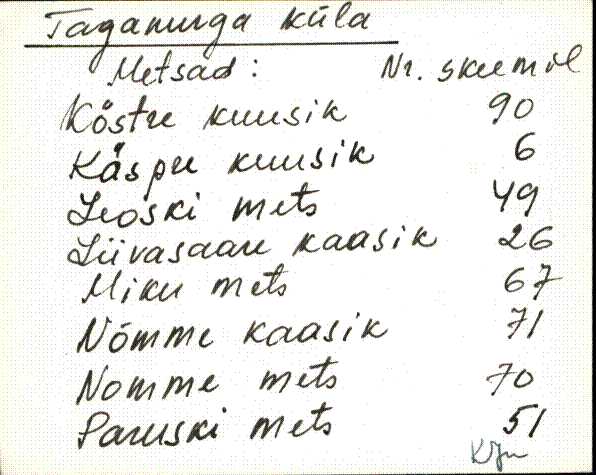 Taganurga küla
Metsad: Nr. skeemil
Köstre kuusik 90
Käspre kuusik 6
Leoski mets 49
Liivasaare kaasik 26
Miku mets 67
Nõmme kaasik 71
Nomme mets 70
Paruski mets 51